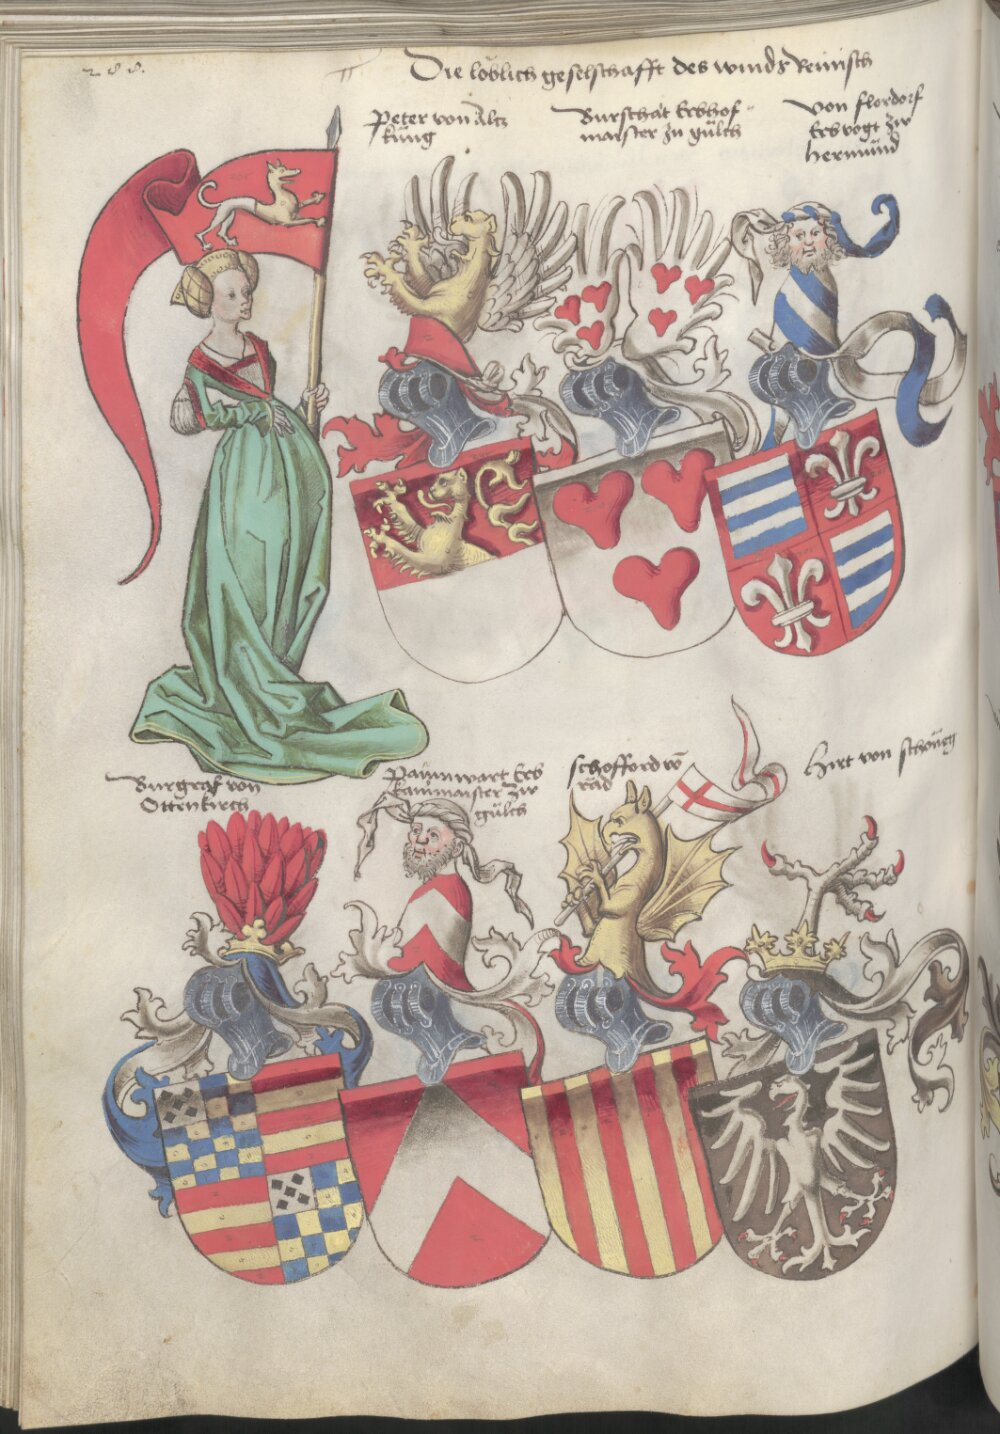 288.
Die löblich geselschafft des winds Reinisch
Peter von Altz
küng
Burschät Erbhof
maister zu gülch
Von flordorf
Erbvogt zw
hermünd
Burgraf von
Ottenkirch
Paumwart Erb
kammaister zw
gülch
schofford vō
räd
Hirt von schöneg